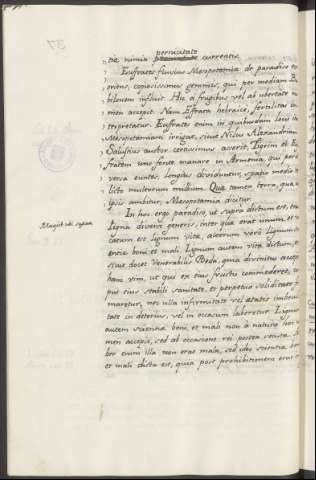 37
pernicitate
tia nimia currentis.
Eufrates fluvius Mesopotamiæ de paradiso ex
oriens, copiosissimus gemmis, qui per mediam Ba
biloniam influit. Hic a frugibus vel ab ubertate no
men accepit. Nam Effrata hebraice, fertilitas in
terpretatur. Eufrates enim in quibusdam locis ita
Mesopotamiam irrigat, sicut Nilus Alexandriam.
Salustius auctor certissimus asserit, Tigrim et Eu
fratem uno fonte manare in Armenia, qui per di
versa euntes, longius dividuntur, spatio medio re
licto multorum millium. Quæ tamen terra, quæ ab
ipsis ambitur, Mesopotamia dicitur.
In hoc ergo paradiso, ut supra dictum est, era
Magist. ubi supra
Ligna diversi generis, inter quæ erat unum, et vo
catum est lignum vitæ, alterum verò Lignum sci
entiæ boni et mali. Lignum autem vitæ dictum, e
sicut docet Venerabilis Beda, quia divinitus accep
hanc vim, ut qui ex eius fructu commederet, co
pus eius stabili sanitate, et perpetua soliditate fi
maretur, nec ulla infirmitate vel ætatis imbecil
tate in deterius, vel in occasum laberetur. Lignum
autem scientiæ boni, et mali non à natura hoc no
men accepit, sed ab occasione rei postea secuta. Ar
bor enim illa non erat mala, sed ideo scientiæ bon
et mali dicta est, quia post prohibitionem erat